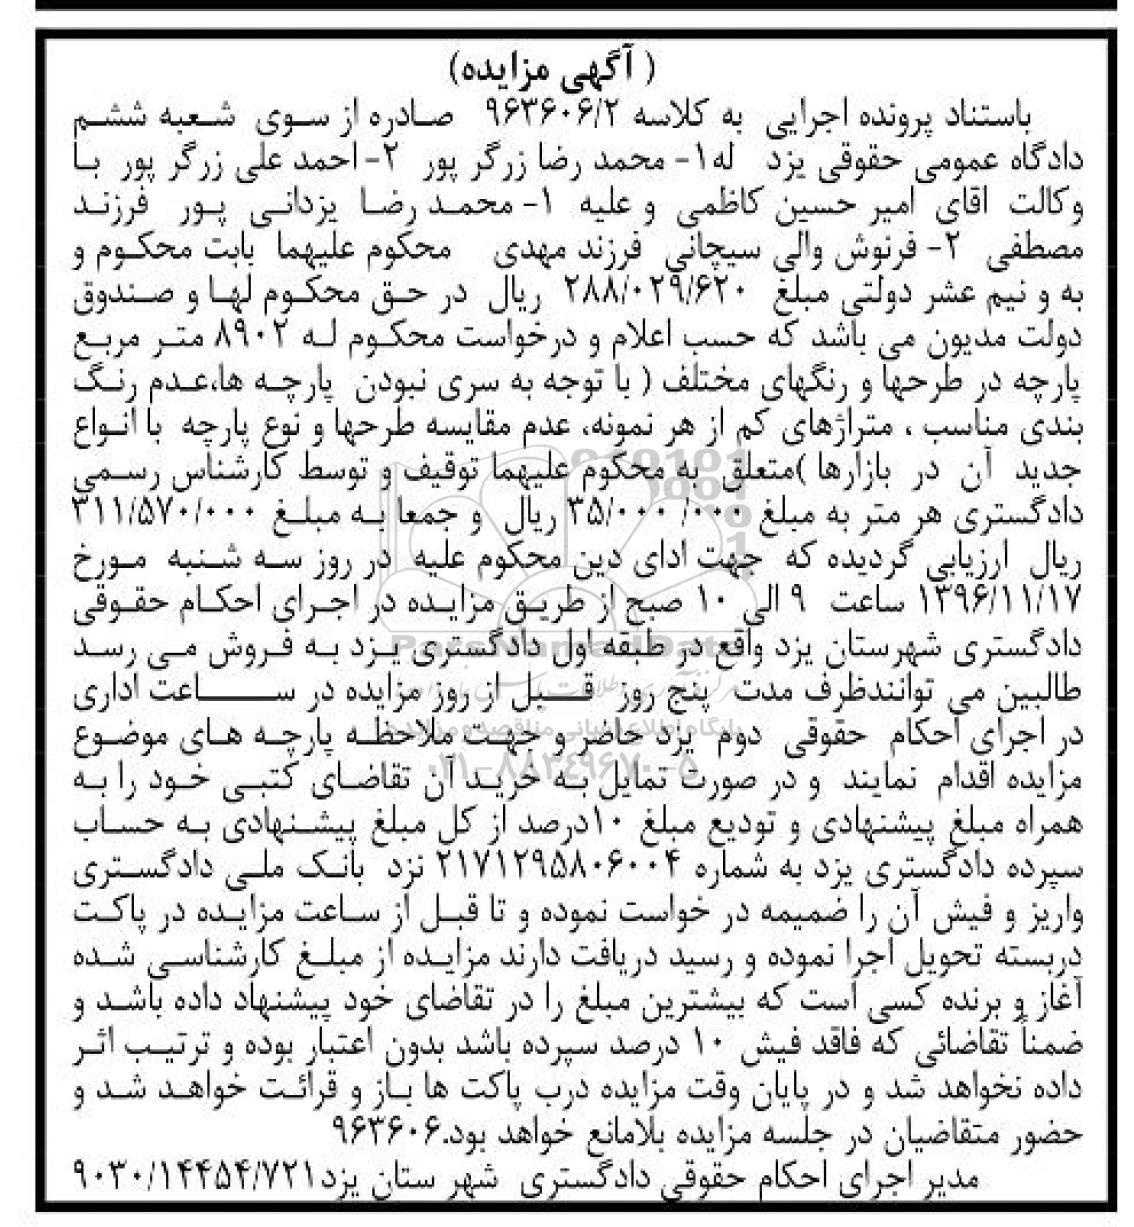 ( آگهی مزایده)
باستناد پرونده اجرایی به کلاسه ۹۶۳۶۰۶/۲ صادره از سوی شعبه ششم
دادگاه عمومی حقوقی یزد له۱- محمد رضا زرگر پور ۲- احمد علی زرگر پور با
وکالت اقای امیر حسین کاظمی و علیه ۱- محمد رضا یزدانی پور فرزند
مصطفی ۲- فرنوش والی سیچانی فرزند مهدی محکوم علیهما بابت محکوم و
به و نیم عشر دولتی مبلغ ۲۸۸/۰۲۹/۶۲۰ ریال در حق محکوم لها و صندوق
دولت مدیون می باشد که حسب اعلام و درخواست محکوم له ۸۹۰۲ متر مربع
پارچه در طرحها و رنگهای مختلف ( با توجه به سری نبودن پارچه ها،عدم رنگ
بندی مناسب ، متراژهای کم از هر نمونه، عدم مقایسه طرحها و نوع پارچه با انواع
جدید آن در بازارها )متعلق به محکوم علیهما توقیف و توسط کارشناس رسمی
دادگستری هر متر به مبلغ ۳۵/۰۰۰ /۰۰۰ ریال و جمعا به مبلغ ۳۱۱/۵۷۰/۰۰۰
ریال ارزیابی گردیده که جهت ادای دین محکوم علیه در روز سه شنبه مورخ
۱۳۹۶/۱۱/۱۷ ساعت ۹ الی ۱۰ صبح از طریق مزایده در اجرای احکام حقوقی
دادگستری شهرستان یزد واقع در طبقه اول دادگستری یزد به فروش می رسد
طالبین می توانندظرف مدت پنج روز قبل از روز مزایده در ساعت اداری
در اجرای احکام حقوقی دوم یزد حاضر و جهت ملاحظه پارچه های موضوع
مزایده اقدام نمایند و در صورت تمایل به خرید آن تقاضای کتبی خود را به
همراه مبلغ پیشنهادی و تودیع مبلغ ۱۰درصد از کل مبلغ پیشنهادی به حساب
سپرده دادگستری یزد به شماره ۲۱۷۱۲۹۵۸۰۶۰۰۴ نزد بانک ملی دادگستری
واریز و فیش آن را ضمیمه در خواست نموده و تا قبل از ساعت مزایده در پاکت
دربسته تحویل اجرا نموده و رسید دریافت دارند مزایده از مبلغ کارشناسی شده
آغاز و برنده کسی است که بیشترین مبلغ را در تقاضای خود پیشنهاد داده باشد و
ضمناً تقاضائی که فاقد فیش ۱۰ درصد سپرده باشد بدون اعتبار بوده و ترتیب اثر
داده نخواهد شد و در پایان وقت مزایده درب پاکت ها باز و قرائت خواهد شد و
حضور متقاضیان در جلسه مزایده بلامانع خواهد بود.۹۶۳۶۰۶
مدیر اجرای احکام حقوقی دادگستری شهر ستان یزد۹۰۳۰/۱۴۴۵۴/۷۲۱